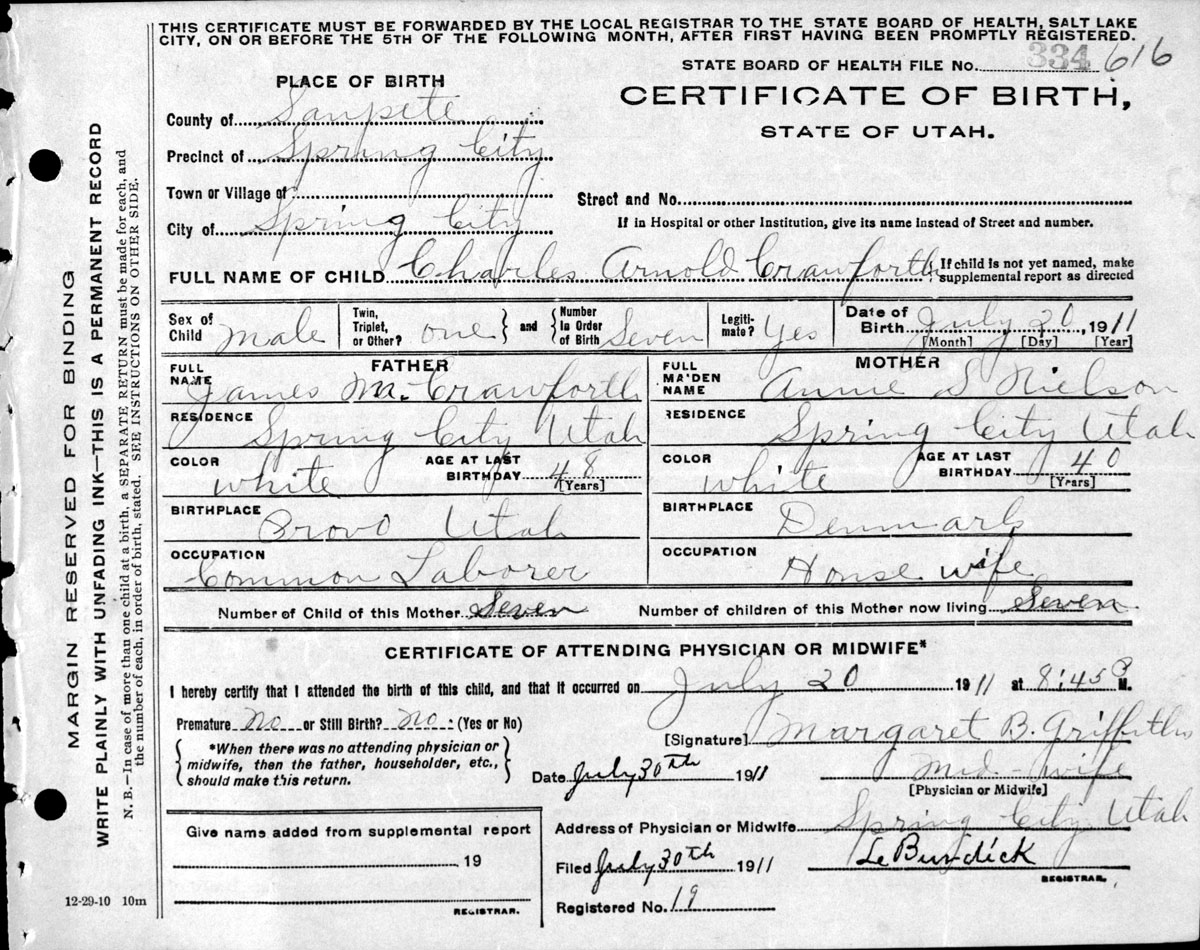 THIS CERTIFICATE MUST BE FORWARDED BY THE LOCAL REGISTRAR TO THE STATE BOARD OF HEALTH, SALT LAKE
CITY, ON OR BEFORE THE 5TH OF THE FOLLOWING MONTH, AFTER FIRST HAVING BEEN PROMPTLY REGISTERED.
STATE BOARD OF HEALTH FILE NO. 334 616
PLACE OF BIRTH
CERTIFICATE OF BIRTH,
STATE OF UTAH.
County of Sanpete
Precinct of Spring City
Town or Village of
Street and No.
City of Spring City
If in Hospital or other Institution, give its name instead of Street and number.
FULL NAME OF CHILD Charles Arnold Crawforth { If child is not yet named, make
supplemental report as directed
Sex of Child Male
Twin, Triplet, or Other? one } and { Number In Order of Birth Seven
Legiti-mate? Yes
Date of Birth July 20, 1911
[Month] [Day] [Year]
FATHER
FULL NAME James M. Crawforth
RESIDENCE Spring City Utah
COLOR white AGE AT LAST BIRTHDAY 48 [Years]
BIRTHPLACE Provo Utah
OCCUPATION Common Laborer
MOTHER
FULL MAIDEN NAME Annie S Nielson
RESIDENCE Spring City Utah
COLOR white AGE AT LAST BIRTHDAY 40 [Years]
BIRTHPLACE Denmark
OCCUPATION House wife
Number of Child of this Mother Seven Number of children of this Mother now living Seven
CERTIFICATE OF ATTENDING PHYSICIAN OR MIDWIFE*
I hereby certify that I attended the birth of this child, and that it occurred on July 20 1911 at 8:45 P M.
Premature No or Still Birth? No. (Yes or No)
*When there was no attending physician or
midwife, then the father, householder, etc.,
should make this return.
[Signature] Margaret B. Griffiths
Date July 30th 1911 Mid-wife
[Physician or Midwife]
Give name added from supplemental report
19
REGISTRAR.
Address of Physician or Midwife Spring City Utah
Filed July 30th 1911 Le Burdick
REGISTRAR.
Registered No. 19
MARGIN RESERVED FOR BINDING
WRITE PLAINLY WITH UNFADING INK—THIS IS A PERMANENT RECORD
N. B.—In case of more than one child at a birth, a SEPARATE RETURN must be made for each, and
the number of each, in order of birth, stated. SEE INSTRUCTIONS ON OTHER SIDE.
12-29-10 10m